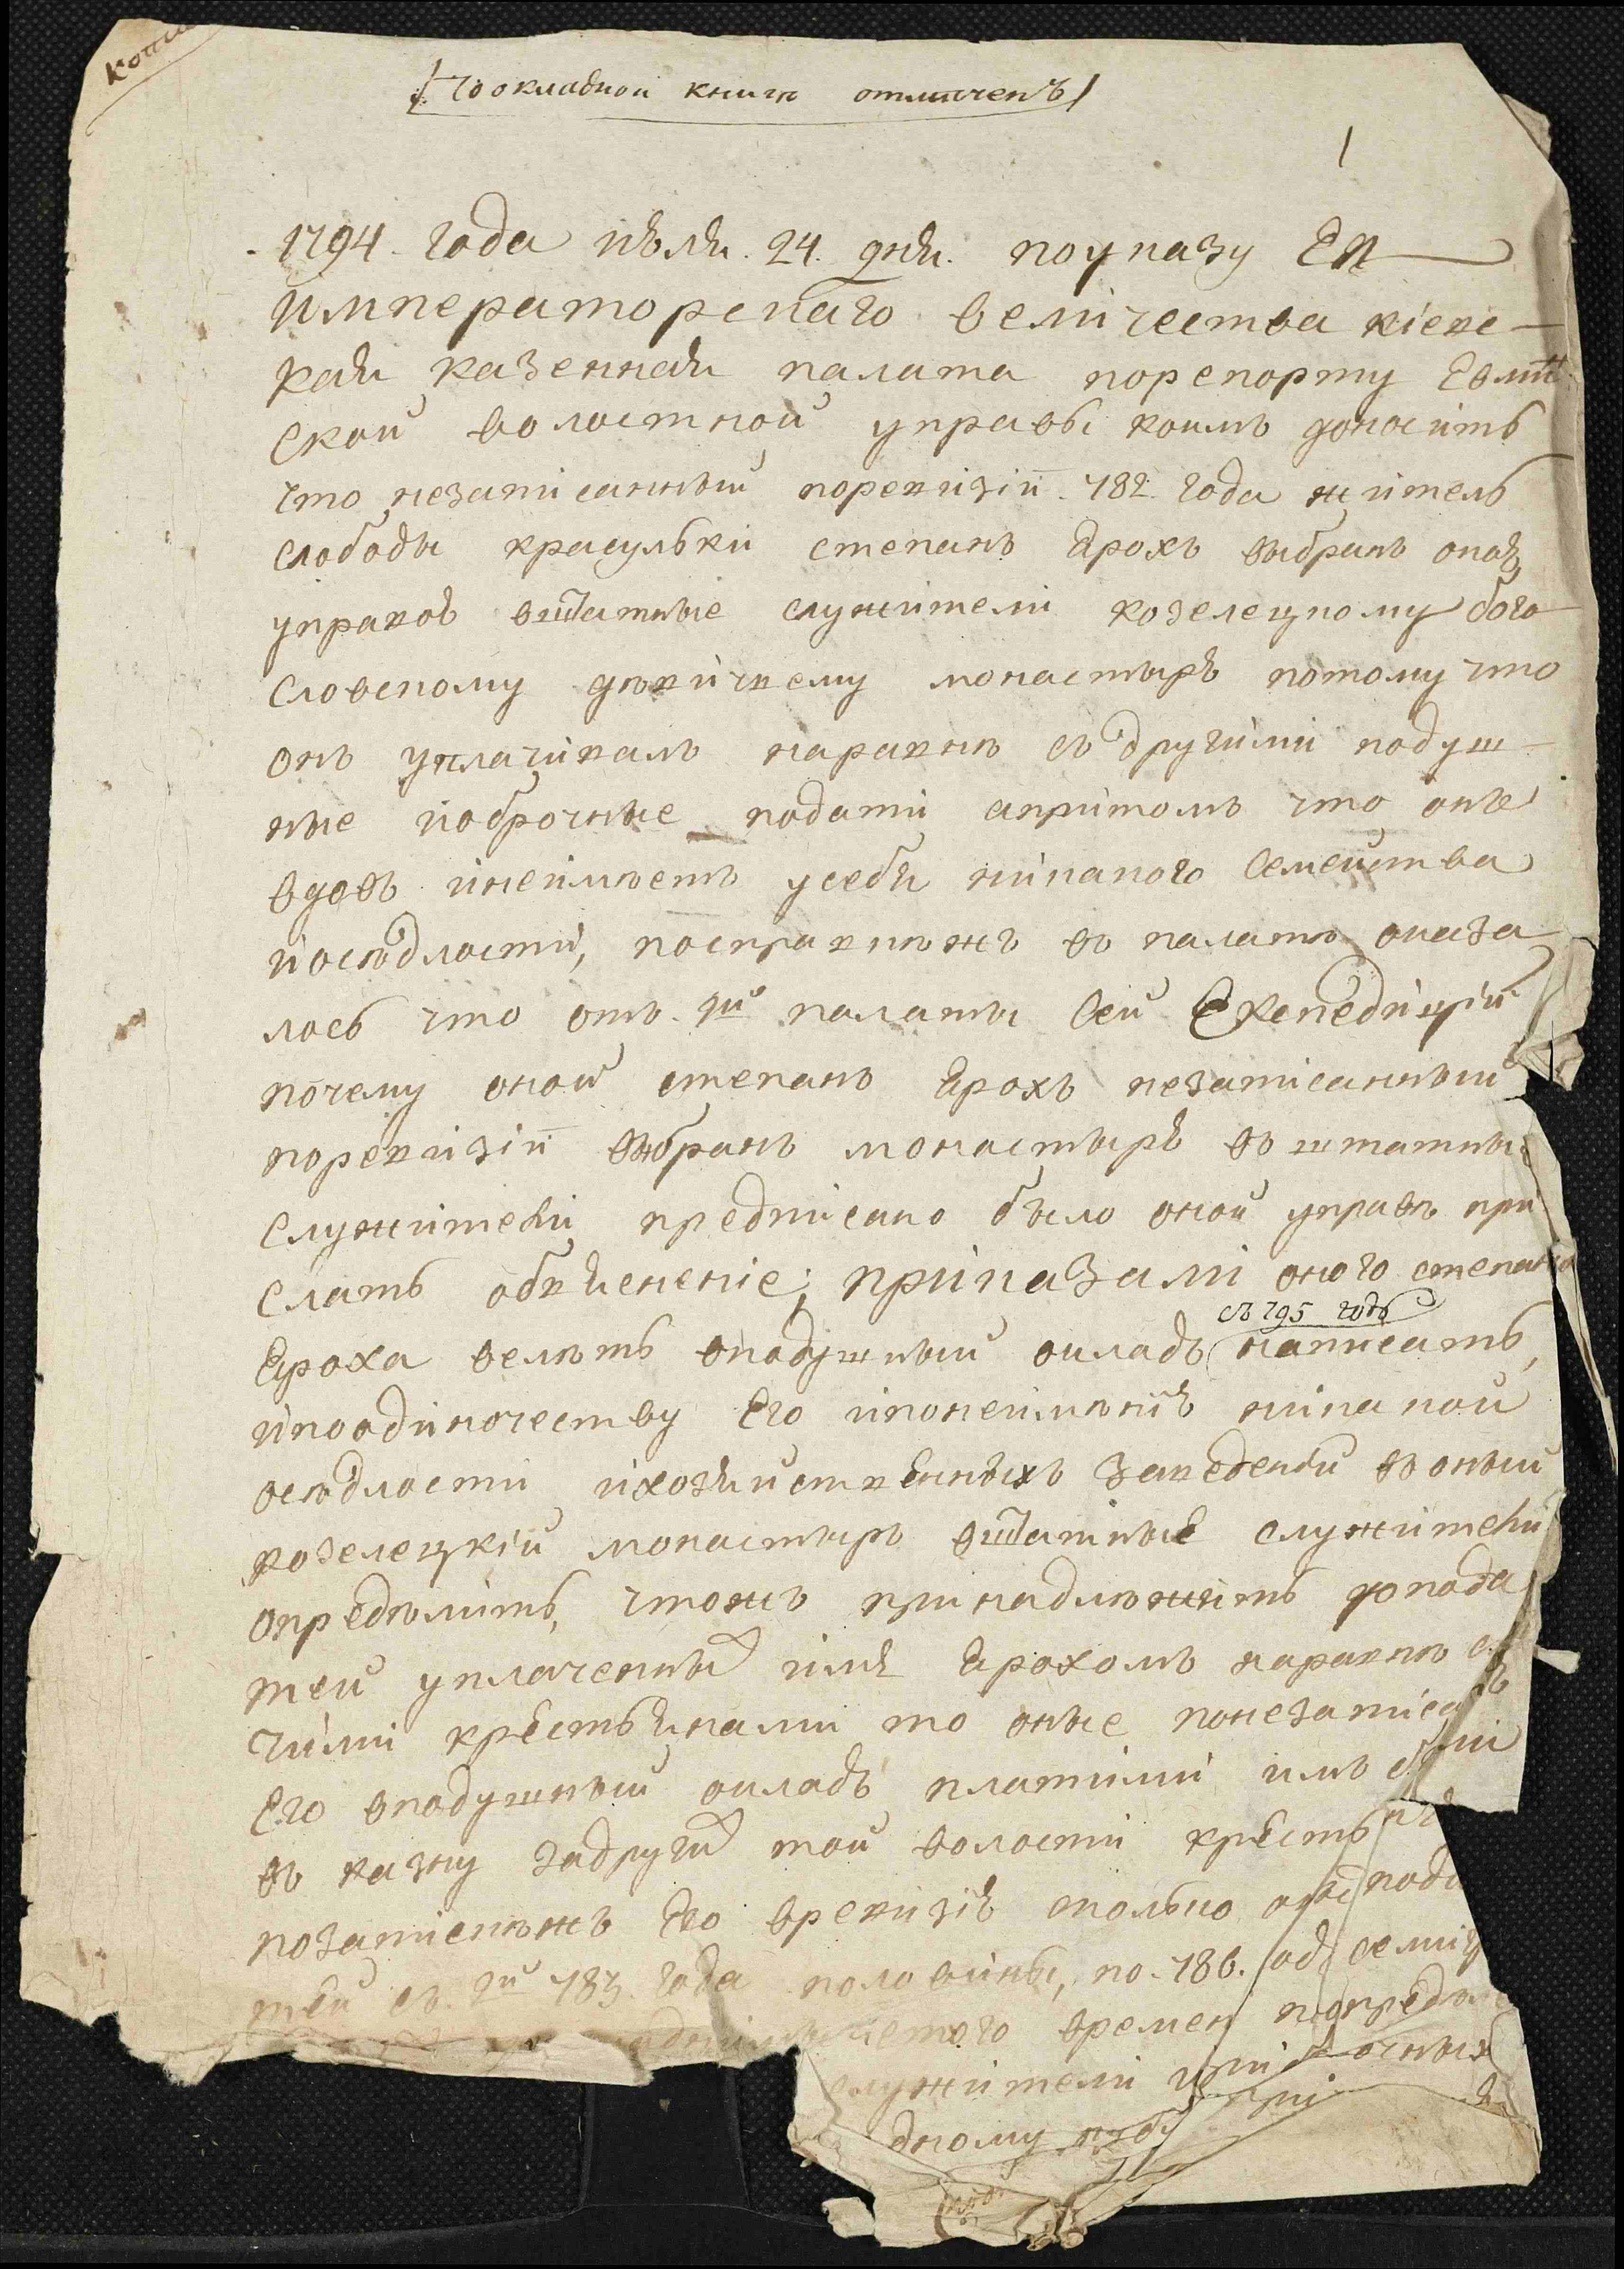 Копия
По окладной книги отмиченъ
1
1794 года июля 24 дня по указу Ея
императорскаго величества киевс
кая казенная палата по репорту Евмин
ской волостной управы коимъ доноситъ
что незаписанный по ревизіи 782 года житель
слободы красульки степанъ Ярохъ выбранъ оноя
управою в штатные служители козелецкому бого
словскому девичьему монастырю потому что
онъ уплачивалъ наравнѣ съ другими подуш
ные и оброчные подати а притомъ что онъ
вдовъ и неимѣетъ у себя никакого семейства
и осѣдлости, по справкѣжъ въ палатѣ оказа
лось что отъ 2й палаты сей Експедиціи
почему оной степанъ Ярохъ незаписанный
по ревизіи выбранъ монастырю въ штатные
служители предписано было оной управѣ при
слать объясненіе; приказали оного степана
Яроха велѣть в подушный окладъ съ 795 годъ написать,
и по одиночеству Его и по неимѣнію никакой
осѣдлости и хозяйственныхъ заведеній въ оный
козелецкій монастырь в штатные служители
опредѣлить, чтожъ принадлѣжитъ до пода
тей уплаченны имъ Ярохомъ наравнѣ съ
чими крестьянами то оные по незаписа
Его в подушный окладъ платими имъ
въ казну за други той волости крестья
по записѣжъ Его в ревизію сколько онъ пода
тей съ 2й 783 года половины, по 786 годъ
того времен опредѣле
служители при
дному